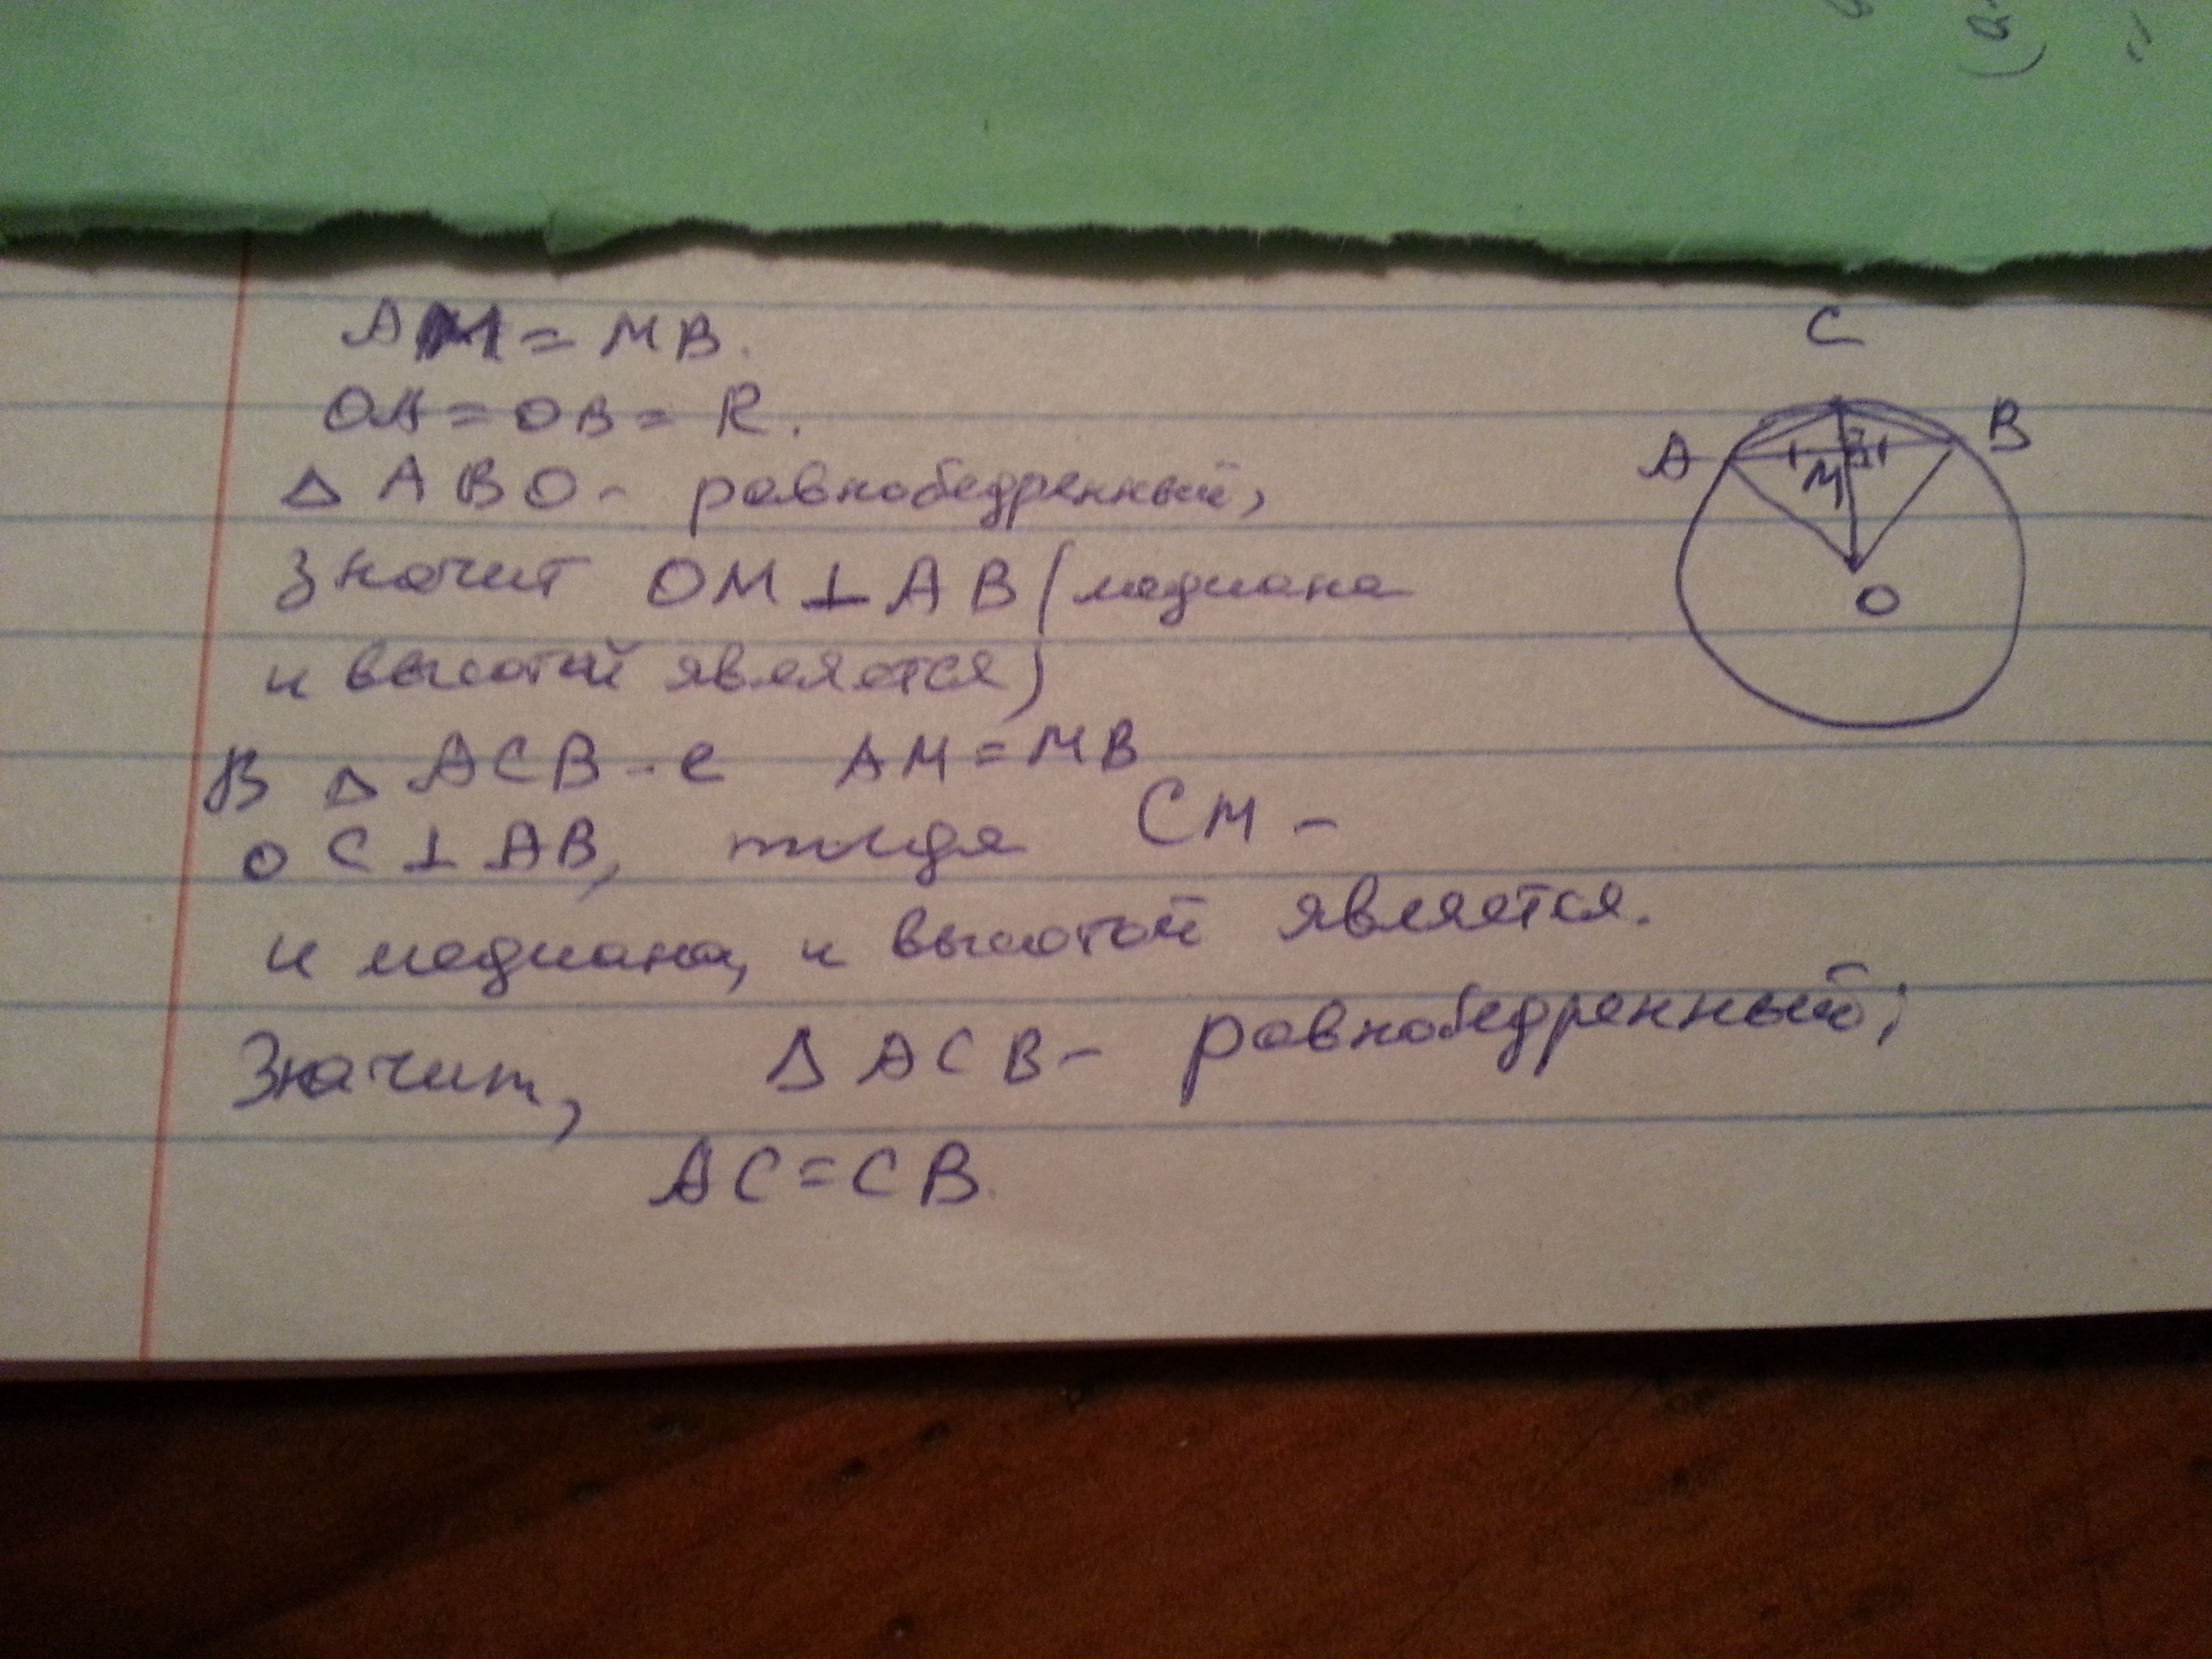 AM = MB.
OA = OB = R.
△ ABO - равнобедренный,
Значит OM ⊥ AB (медиана
и высотой является)
В △ ACB-е AM = MB
OC ⊥ AB, тогда CM -
и медиана, и высотой является.
Значит, △ ACB - равнобедренный;
AC = CB.
C
A
B
M
O